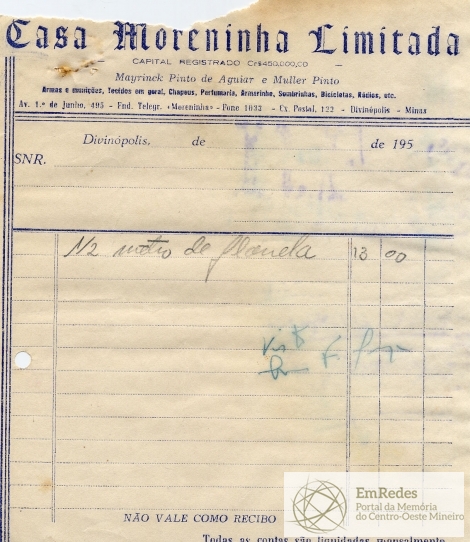 Casa Moreninha Limitada
CAPITAL REGISTRADO Cr$450.000,00
Mayrinck Pinto de Aguiar e Muller Pinto
Armas e munições, Tecidos em geral, Chapeus, Perfumaria, Armarinho, Sombrinhas, Bicicletas, Rádios, etc.
Av. 1.º de Junho, 495 - End. Telegr. «Moreninha» - Fone 1033 - Cx. Postal, 122 - Divinópolis - Minas
Divinópolis, de de 195
SNR.
1/2 metro de flanela 13 00
NÃO VALE COMO RECIBO
Todas as contas são liquidadas mensalmente
EmRedes
Portal da Memória
do Centro-Oeste Mineiro